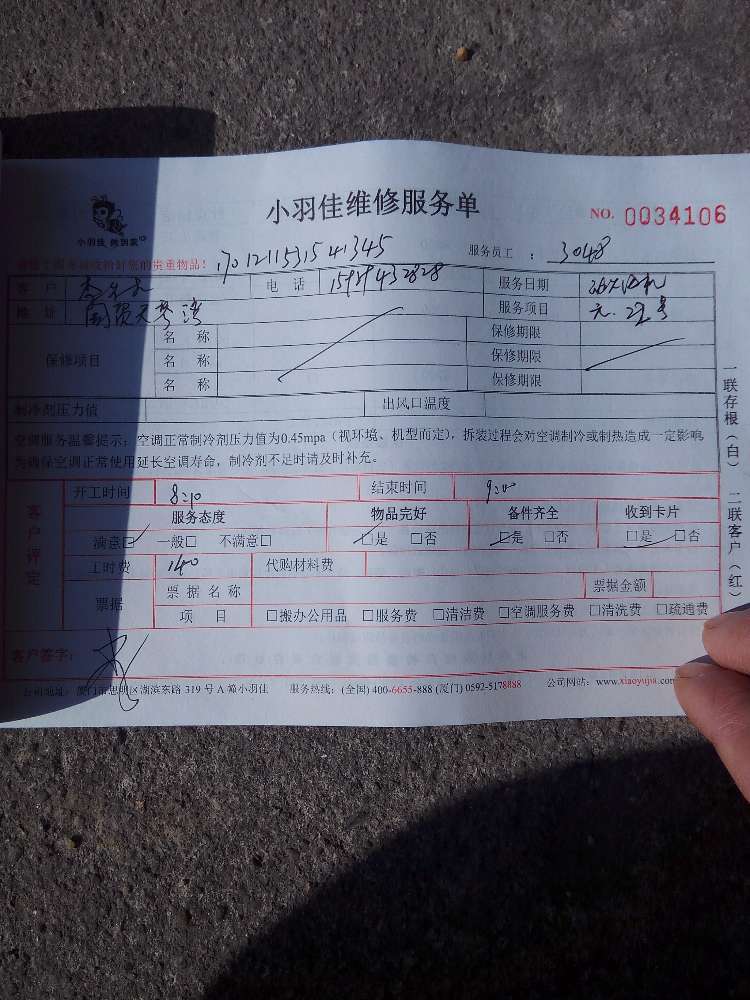 小羽佳维修服务单
NO. 0034106
小羽佳 純到家
贵重物品!
1701211531541345
服务员工 : 3048
客户 电话 15959432828 服务日期
地址 国贸天琴湾 服务项目
保修项目 名称 保修期限
名称 保修期限
名称 保修期限
制冷剂压力值 出风口温度
空调服务温馨提示:空调正常制冷剂压力值为0.45mpa(视环境、机型而定),拆装过程会对空调制冷或制热造成一定影响
为确保空调正常使用延长空调寿命,制冷剂不足时请及时补充。
客户评定
开工时间 8:10 结束时间 9:00
服务态度 物品完好 备件齐全 收到卡片
满意□ 一般□ 不满意□ □是 □否 □是 □否 □是 □否
工时费 140 代购材料费
票据 票据名称 票据金额
项目 □搬办公用品 □服务费 □清洁费 □空调服务费 □清洗费 □疏通费
客户签字:
公司地址:厦门市思明区湖滨东路 319 号 A 幢小羽佳 服务热线:(全国) 400-6655-888 (厦门) 0592-5178888 公司网站:www.xiaoyujia.com
一联存根(白) 二联客户(红)